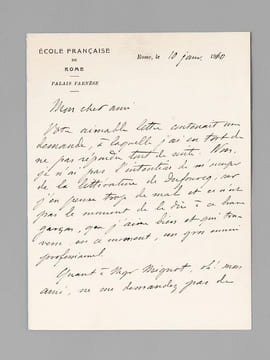 ÉCOLE FRANÇAISE
DE
ROME
PALAIS FARNÈSE
Rome, le 10 janv. 1910
Mon cher ami
Votre aimable lettre contenait une
demande, à laquelle j'ai eu tort de
ne pas répondre tout de suite. Non,
je n'ai pas l'intention de m'occuper
de la littérature de Dufourcq, car
j'en pense trop de mal et ce n'est
pas le moment de le dire à ce brave
garçon, que j'aime bien et qui trav
en ce moment, un gros
professionnel.
Quant à Mgr Mignot, oh! mon
ami, ne me demandez pas de